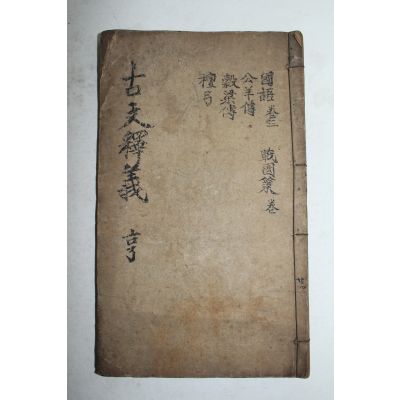 國語 卷三 戰國策 卷
公羊傳
穀梁傳
檀弓
古文釋義 亨